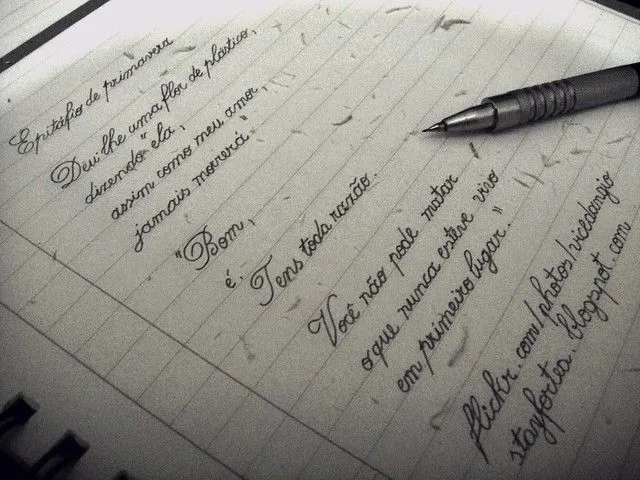 Epitáfio de primavera
Deu-lhe uma flor de plástico,
dizendo "ela,
assim como meu amor,
jamais morrerá".
"Bom,
é. Tens toda razão.
Você não pode matar
o que nunca esteve vivo
em primeiro lugar."
flickr.com/photos/viceldangio
stayfortea.blogspot.com